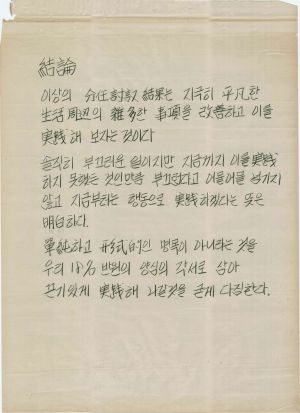 結論
이상의 分任討議 結果는 지극히 平凡한
生活周辺의 雜多한 事項을 改善하고 이를
実践해 보자는 것이다
솔직히 부끄러운 일이지만 지금까지 이를 実践
하지 못했든 것인만큼 부끄럽다고 어물어물 넘기지
않고 지금부터는 행동으로 実践하겠다는 뜻은
明白하다.
單純하고 形式的인 명목이 아니라는 것을
우리 18% 반원의 양심의 각서로 삼아
끈기있게 実践해 나갈것을 굳게 다짐한다.